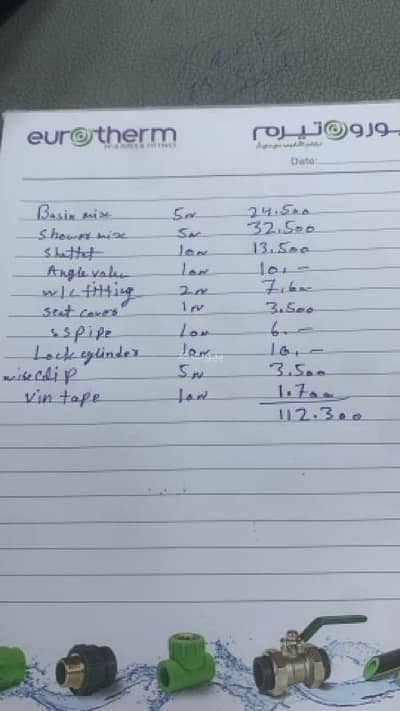 eurotherm
يوروتيرم
PP-R PIPES & FITTINGS
Date:
Basin mix 5N 24.500
Shower mix 5N 32.500
Shattaf 10N 13.500
Angle valve 10N 10.-
w/c fitting 2N 7.600
seat cover 1N 3.500
SS pipe 10N 6.-
Lock cylinder 10N 10.-
clip 5N 3.500
Vin tape 10N 1.700
112.300